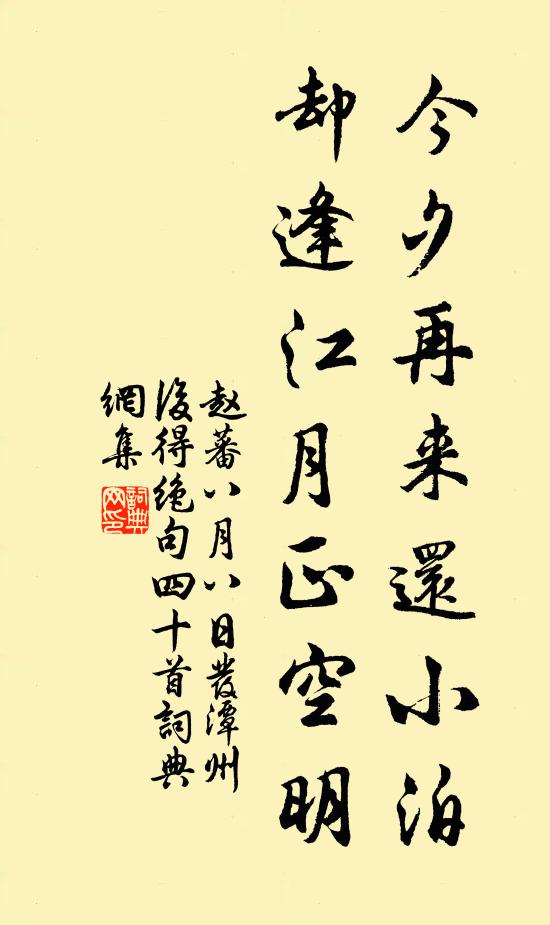 今夕再来還小泊
却逢江月正空明
赵蕃八月八日發潭州
後得絶句四十首詞典
網集
詞典
网印